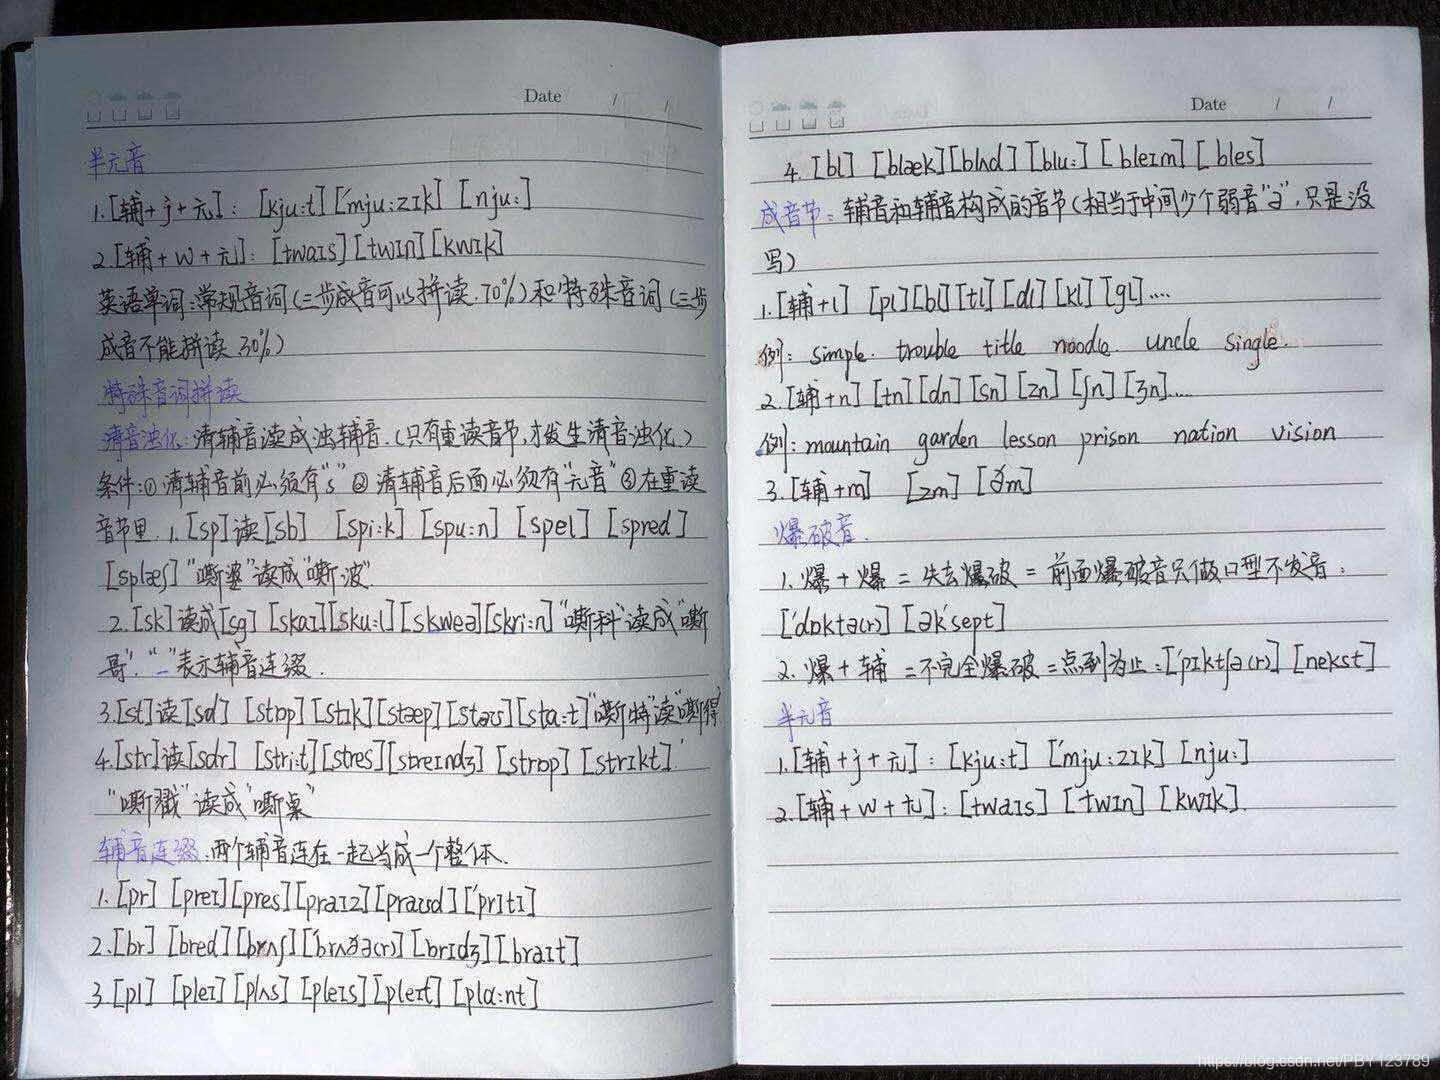 Date / /
半元音
1.[辅+j+元]: [kju:t] ['mju:zɪk] [nju:]
2.[辅+w+元]: [twaɪs] [twɪn] [kwɪk]
英语单词:常规音词(三步成音可以拼读.70%)和特殊音词(三步
成音不能拼读.30%)
特殊音词拼读
清音浊化:清辅音读成浊辅音.(只有重读音节,才发生清音浊化.)
条件:①清辅音前必须有"s" ②清辅音后面必须有"元音" ③在重读
音节里. 1.[sp]读[sb] [spi:k] [spu:n] [spel] [spred]
[splæʃ] "嘶婆"读成"嘶波"
2.[sk]读成[sg] [skaɪ] [sku:l] [skweə] [skri:n] "嘶科"读成"嘶
哥". "_"表示辅音连缀.
3.[st]读[sd] [stɒp] [stɪk] [stəep] [stəʊ] [stɑ:t] "嘶特"读"嘶得"
4.[str]读[sdr] [stri:t] [stres] [streɪndʒ] [strɒp] [strɪkt].
"嘶戳"读成"嘶桌"
辅音连缀:两个辅音连在一起当成一个整体.
1.[pr] [preɪ] [pres] [praɪz] [praʊd] ['prɪtɪ]
2.[br] [bred] [brʌʃ] ['brʌðə(r)] [brɪdʒ] [braɪt]
3.[pl] [pleɪ] [plʌs] [pleɪs] [pleɪt] [plɑ:nt]
Date / /
4. [bl] [blæk] [blʌd] [blu:] [bleɪm] [bles]
成音节:辅音和辅音构成的音节(相当于中间少个弱音"ə",只是没
写)
1.[辅+l] [pl] [bl] [tl] [dl] [kl] [gl]....
例: simple. trouble title noodle. uncle single.
2.[辅+n] [tn] [dn] [sn] [zn] [ʃn] [ʒn].....
例: mountain garden lesson prison nation vision
3.[辅+m] [zm] [ðm]
爆破音.
1.爆+爆=失去爆破=前面爆破音只做口型不发音:
['dɒktə(r)] [ək'sept]
2.爆+辅=不完全爆破=点到为止:['pɪktʃə(r)] [nekst]
半元音
1.[辅+j+元]: [kju:t] ['mju:zɪk] [nju:]
2.[辅+w+元]: [twaɪs] [twɪn] [kwɪk].
https://blog.csdn.net/PBY123789